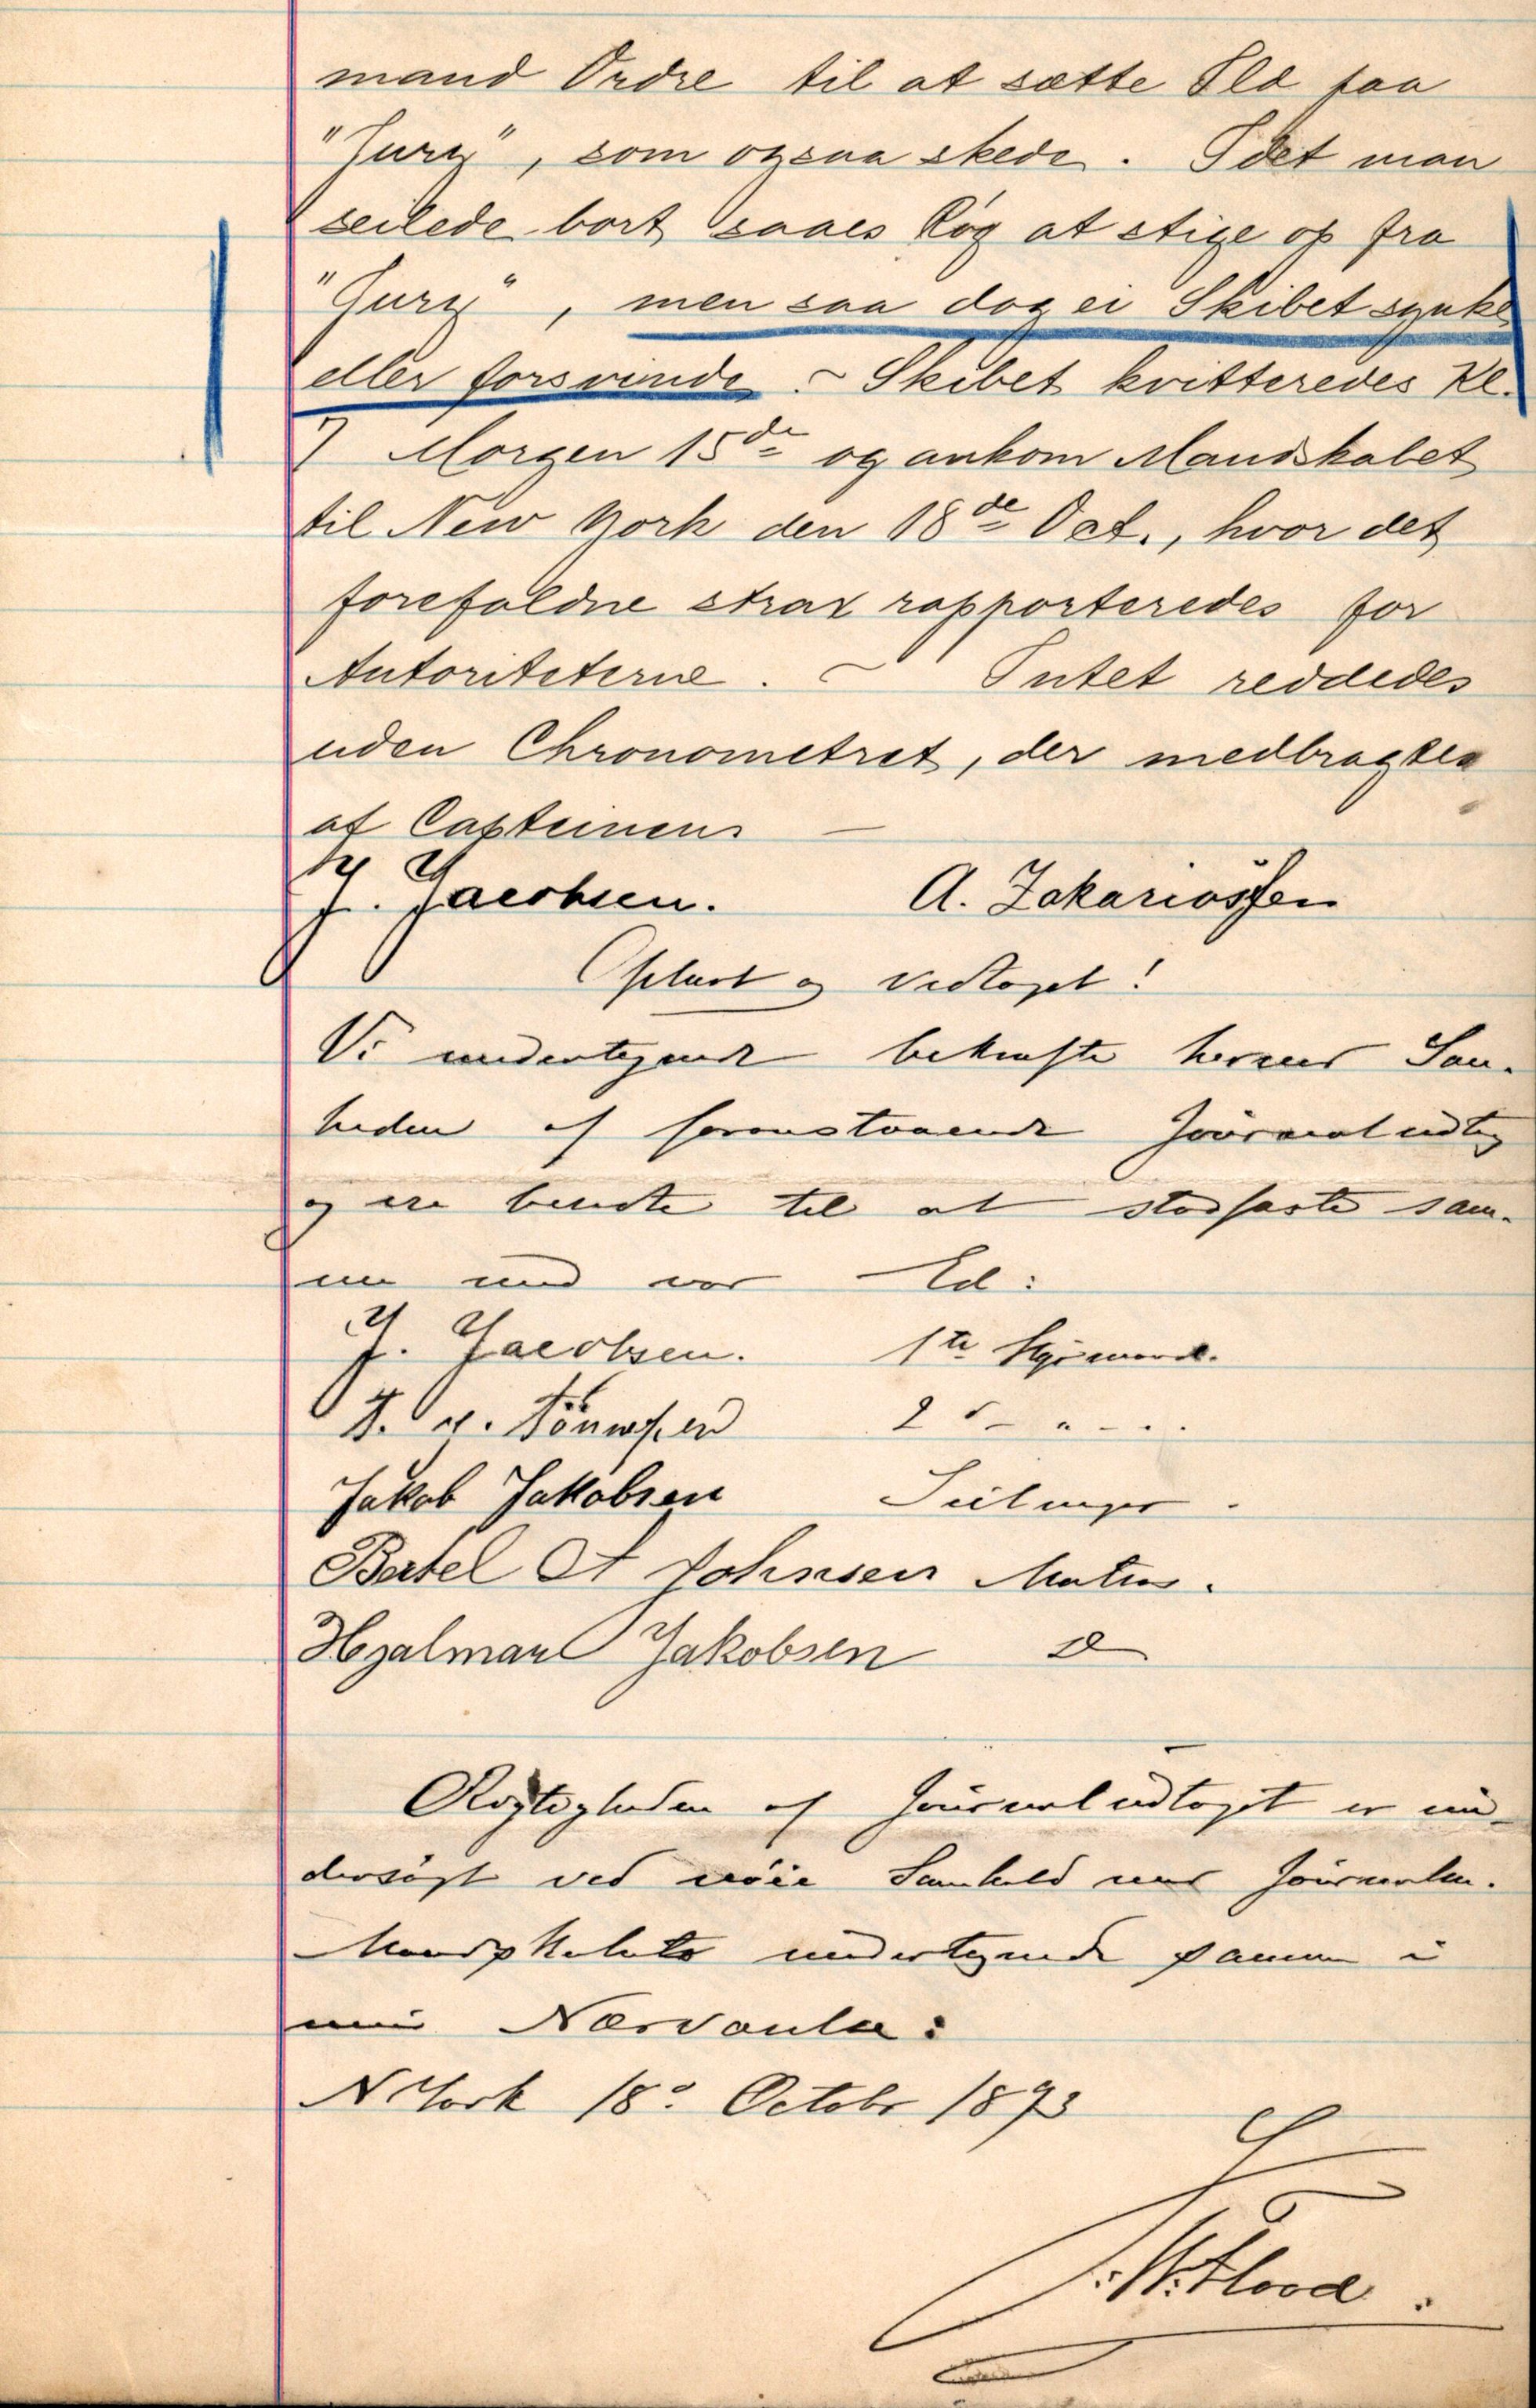 mand Ordre til at sætte Ild paa
"Jury", som ogsaa skede. Idet man
seilede bort saaes Røg at stige op fra
"Jury", men saa dog ei Skibet synke
eller forsvinde. ~ Skibet kvitteredes Kl.
7 Morgen 15de og ankom Mandskabet
til New York den 18de Oct., hvor det
forefaldne strax rapporteredes for
Autoriteterne. ~ Intet reddedes
uden Chronometret, der medbragtes
af Capteinen. —
J. Jacobsen. A. Zakariassen
Oplæst og vedtaget!
Vi undertegnede bekræfte herved San-
heden af foranstaaende Journaludtog
og ere beredte til at stadfæste sam-
me med vor Ed:
J. Jacobsen. 1ste Styrmand.
Jakob Jakobsen Seilmager.
Bertel A Johnsen Matros.
Hjalmar Jakobsen do
Rigtigheden af Journaludtoget er un-
dersøgt ved nøie Samhold med Journalen.
Mandskabet undertegnede samme i
min Nærværelse:
N York 18de Octobr 1893
F. W. Flood.